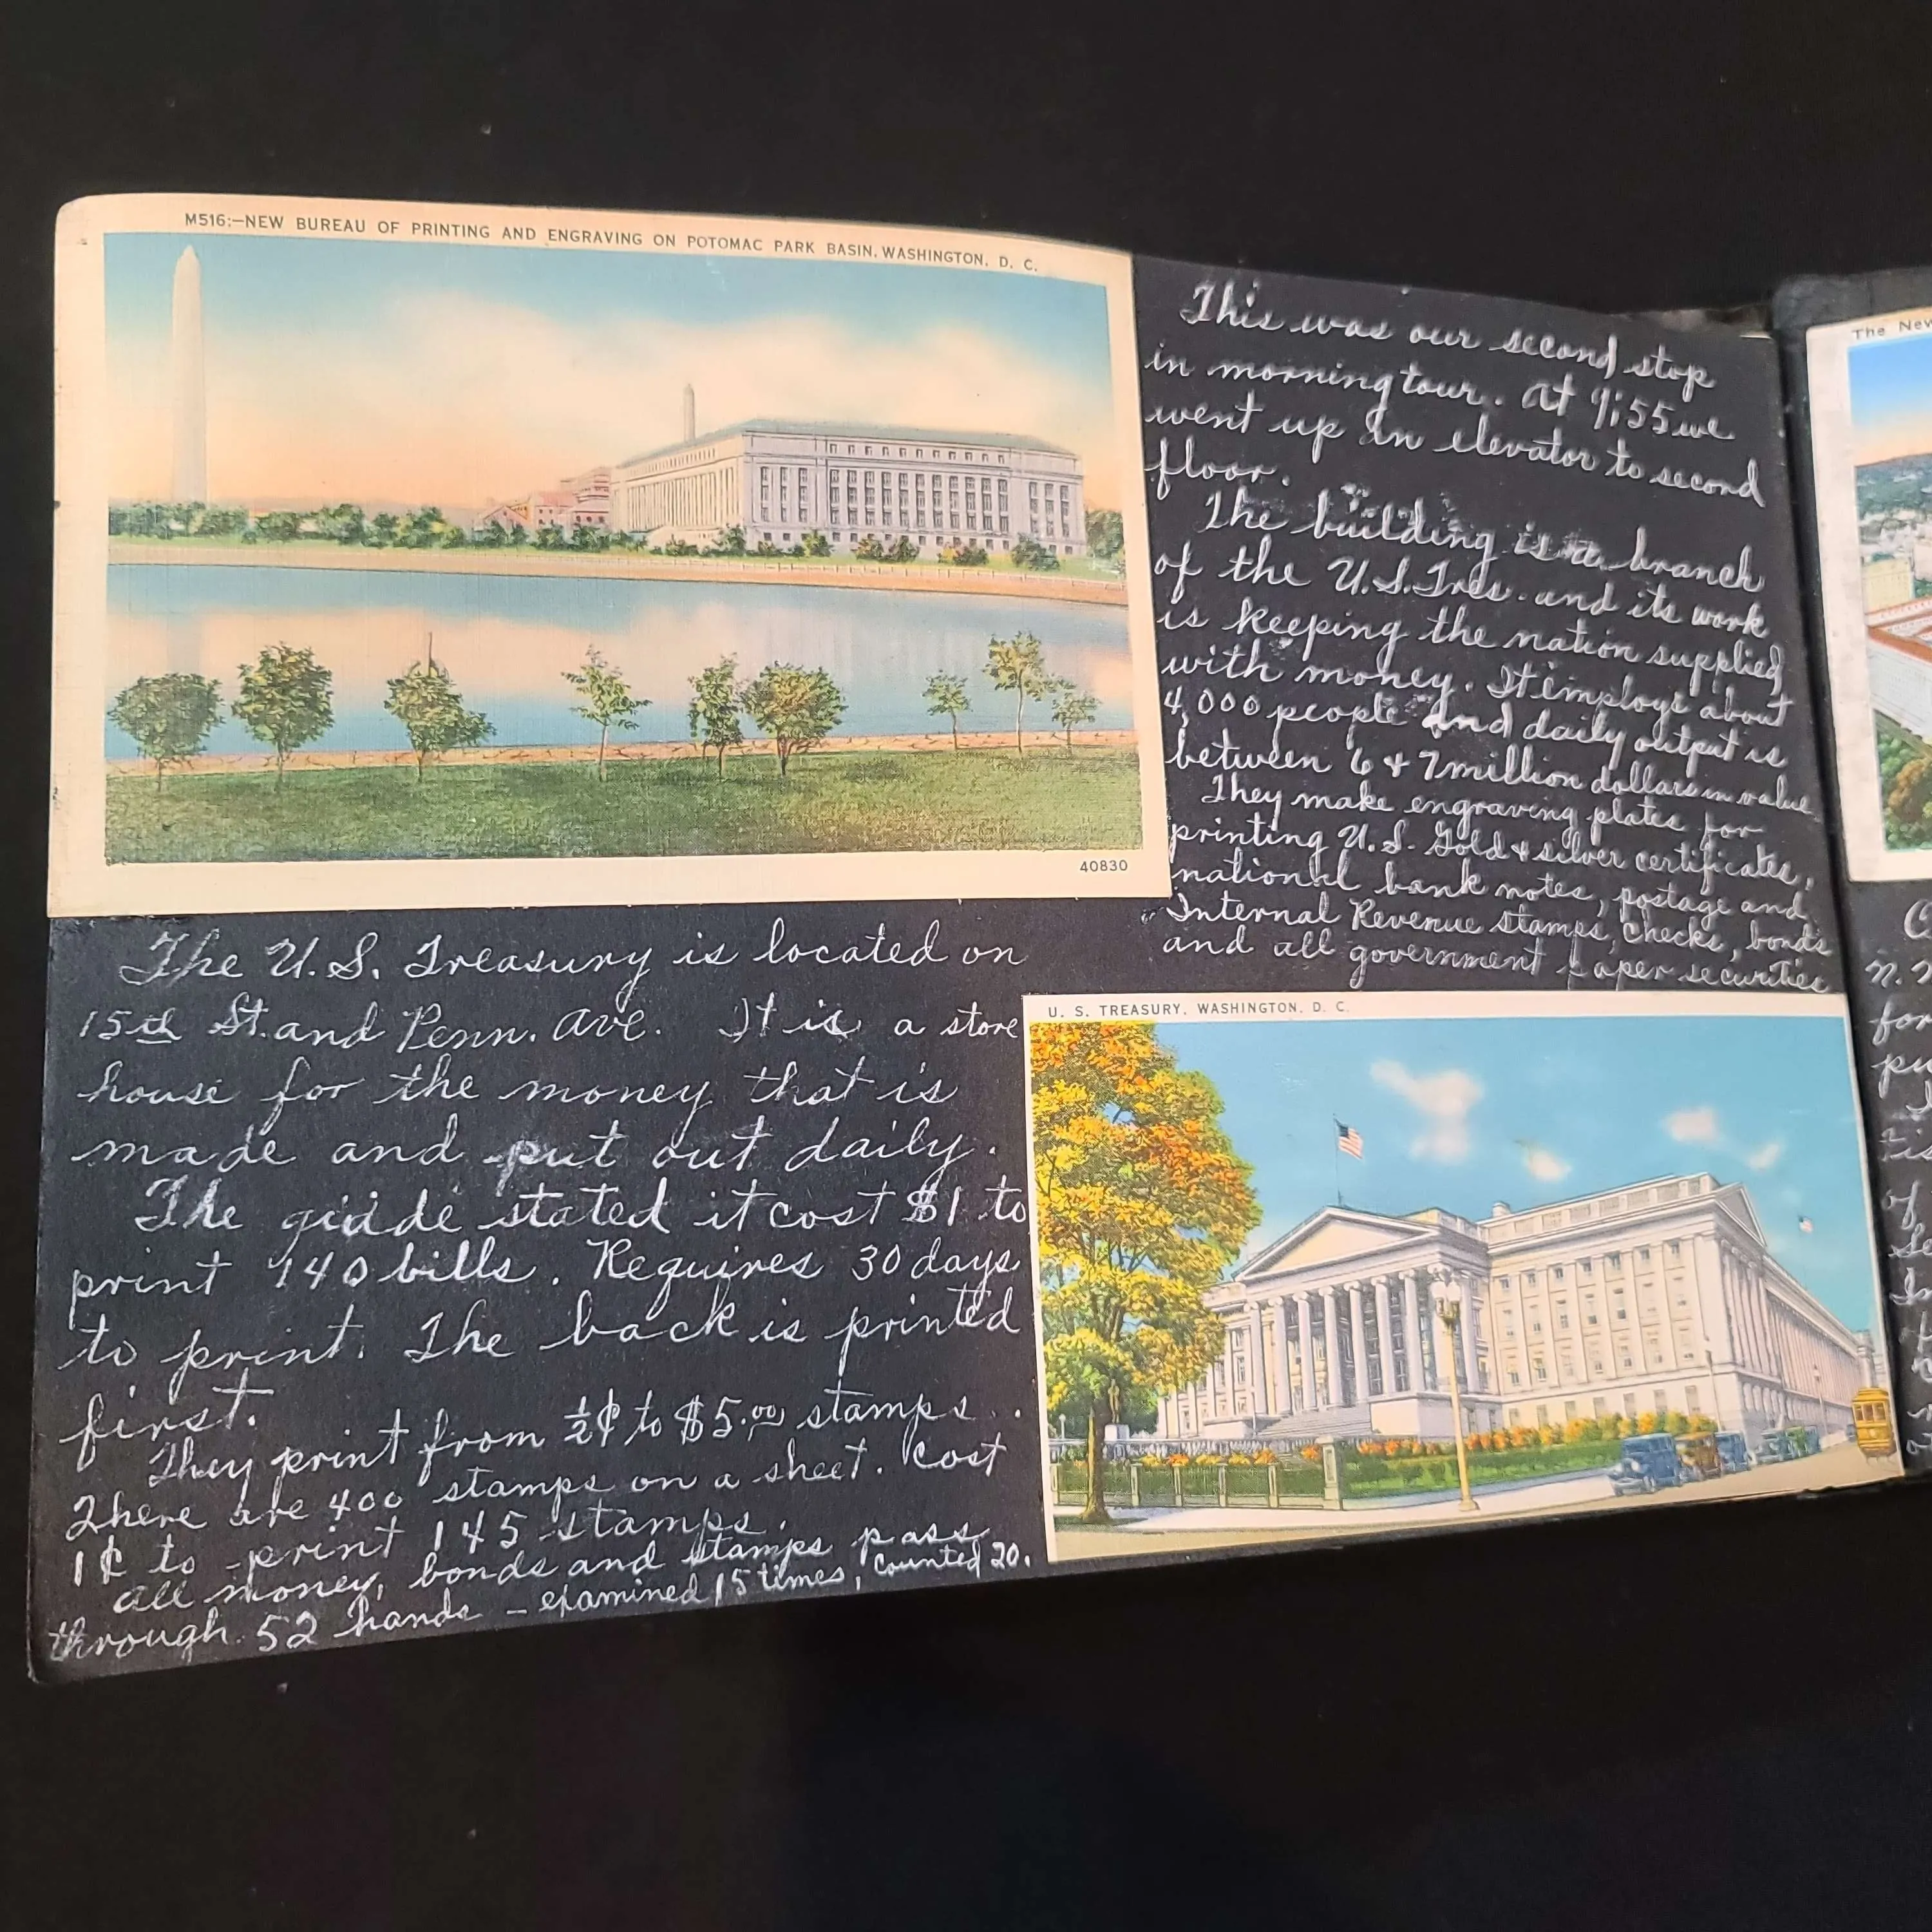 M516:—NEW BUREAU OF PRINTING AND ENGRAVING ON POTOMAC PARK BASIN, WASHINGTON, D. C.
40830
This was our second stop
in morning tour. At 9:55 we
went up an elevator to second
floor.
The building is a branch
of the U.S. Tres. and its work
is keeping the nation supplied
with money. It employs about
4,000 people and daily output is
between 6 & 7 million dollars in value
They make engraving plates for
printing U.S. Gold & silver certificates,
national bank notes, postage and
Internal Revenue stamps, checks, bonds
and all government paper securities
The U.S. Treasury is located on
15th St. and Penn. Ave. It is a store
house for the money that is
made and put out daily.
The guide stated it cost $1 to
print 140 bills. Requires 30 days
to print. The back is printed
first.
They print from ½¢ to $5.00 stamps.
There are 400 stamps on a sheet. Cost
1¢ to print 145 stamps.
All money, bonds and stamps pass
through 52 hands – examined 15 times, counted 20.
U. S. TREASURY, WASHINGTON, D. C.
The New
n.
for
pu
of